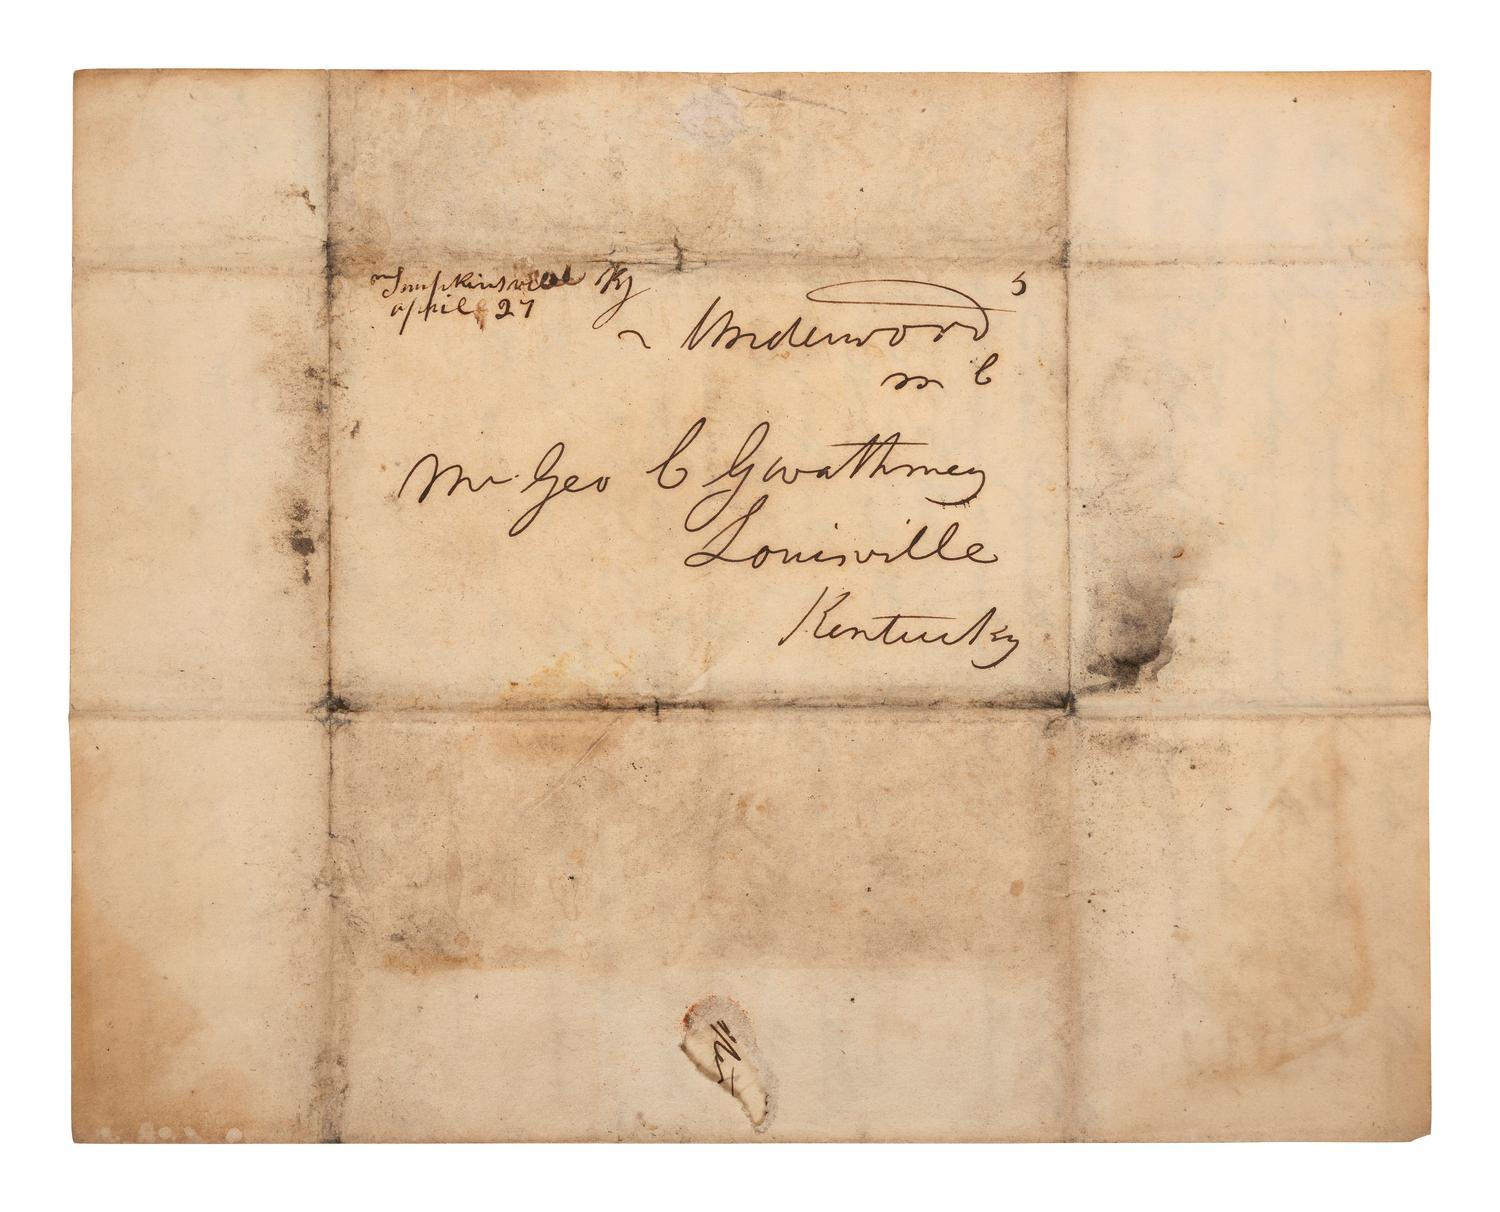 Tompkinsville Ky
april 27
5
Underwood
m C
Mr Geo C Gwathmey
Louisville
Kentucky